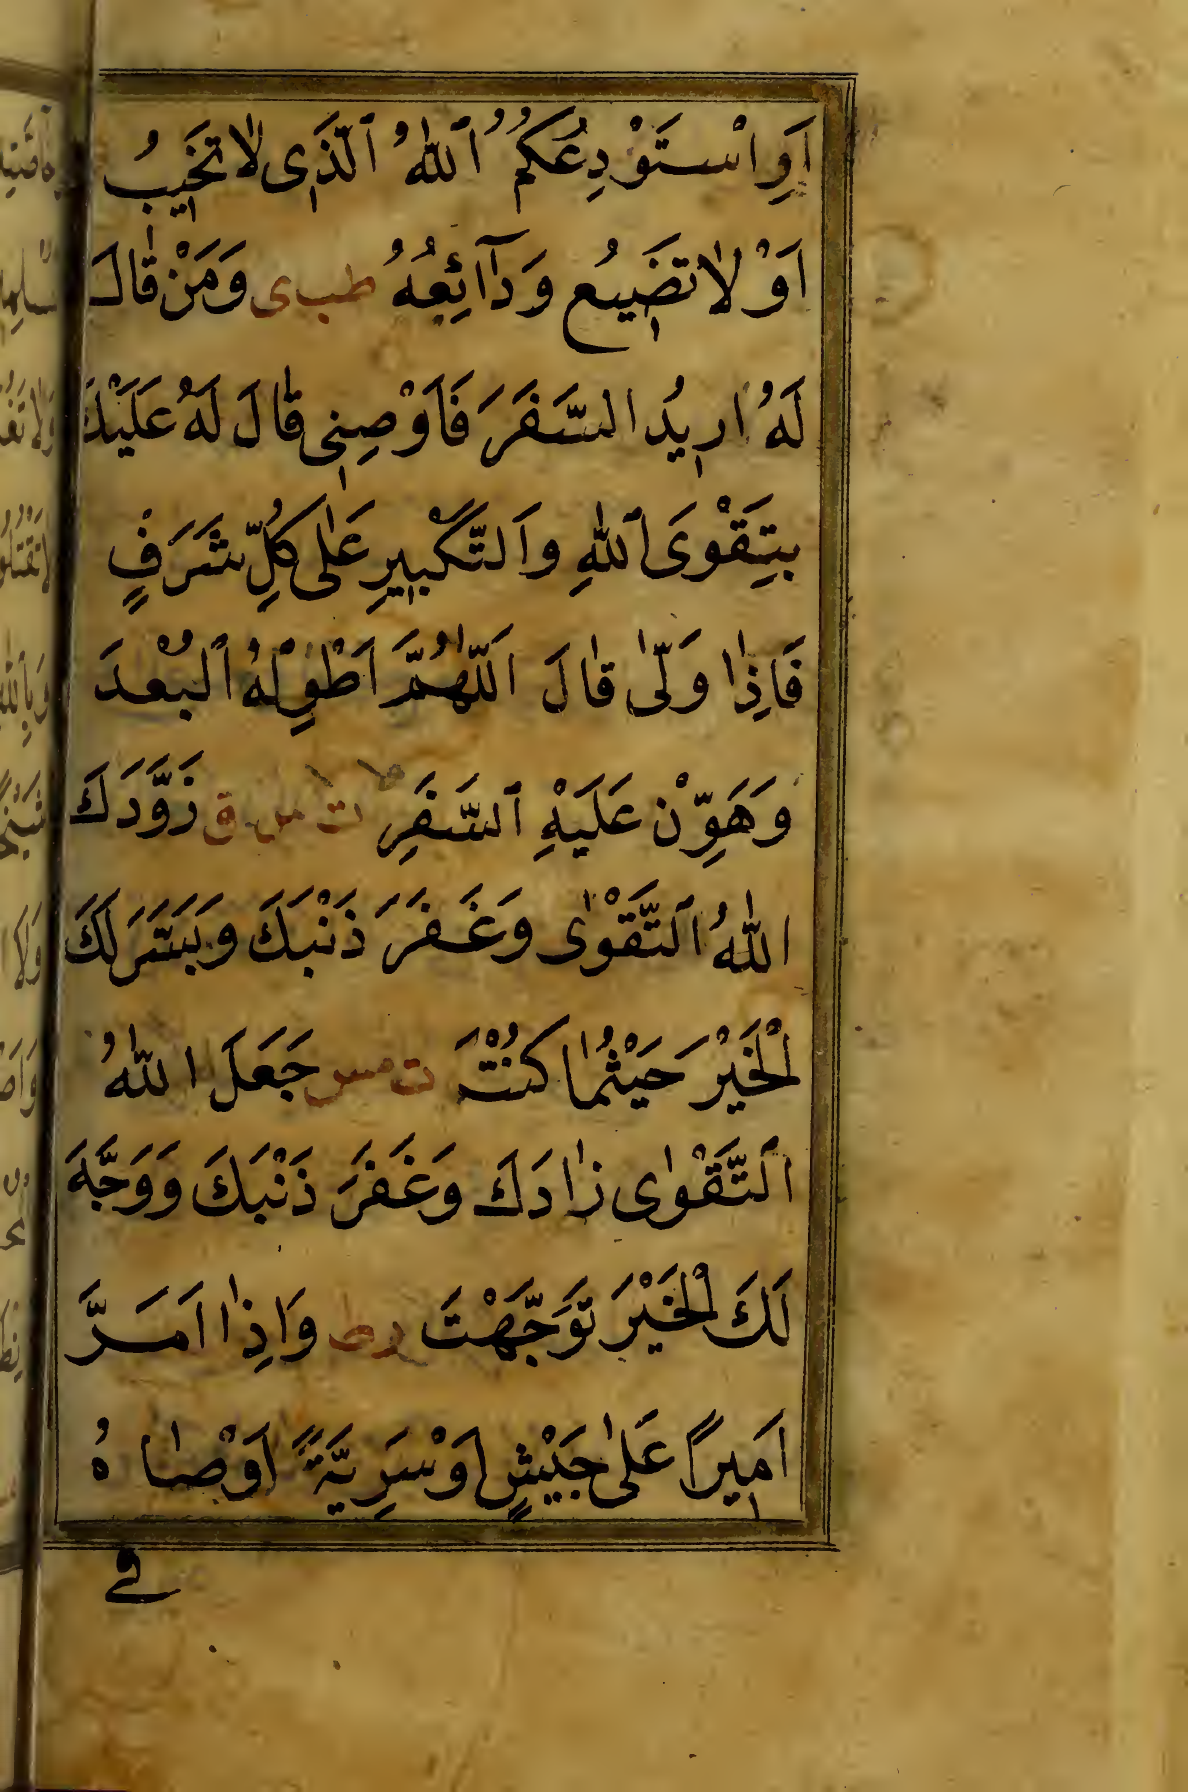 اَوِ اسْتَوْدِعُكُمُ ٱللّٰهُ ٱلَّذَى لَا تَخَيِبُ
اَوْ لَا تَضَيِيعُ وَدَآئِعُهُ طب ى وَمَنْ قَالَ
لَهُ اُرِيدُ السَّفَرَ فَاَوْصِنِى قَالَ لَهُ عَلَيْكَ
بِتَقْوَى ٱللّٰهِ وَالتَّكْبِيرِ عَلٰى كُلِّ شَرَفٍ
فَاِذٰا وَلّٰى قَالَ اَللّٰهُمَّ اَطْوِلَهُ ٱلْبُعْدَ
وَهَوِّنْ عَلَيْهِ ٱلسَّفَرِ ت س ق زَوَّدَكَ
اللّٰهُ ٱلتَّقْوٰى وَغَفَرَ ذَنْبَكَ وَيَسَّرَ لَكَ
الْخَيْرَ حَيْثُمٰا كُنْتَ ت مس جَعَلَ اللّٰهُ
اَلتَّقْوٰى زٰادَكَ وَغَفَرَ ذَنْبَكَ وَوَجَّهَ
لَكَ الْخَيْرَ تَوَجَّهْتَ رط وَاِذٰا اَمَرَّ
اَمِيرًا عَلٰى جَيْشٍ اَوْ سَرِيَّةً اَوْصٰاهُ
فى